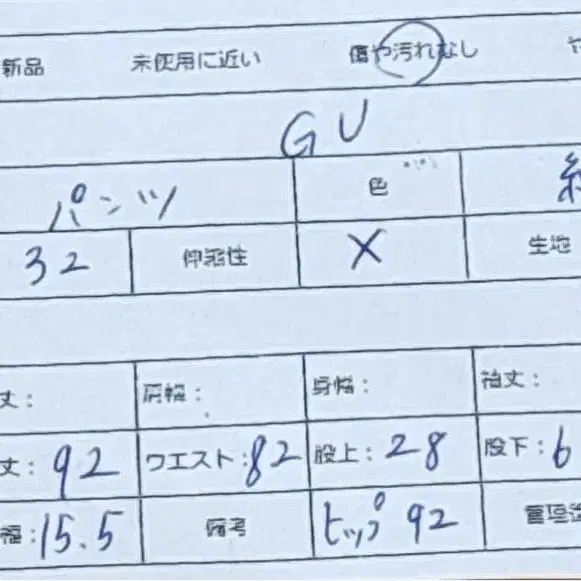 新品 未使用に近い 傷や汚れなし
GU
パンツ 色
32 伸縮性 X 生地
丈: 肩幅: 身幅: 袖丈:
丈: 92 ウエスト: 82 股上: 28 股下: 6
幅: 15.5 備考 ヒップ 92